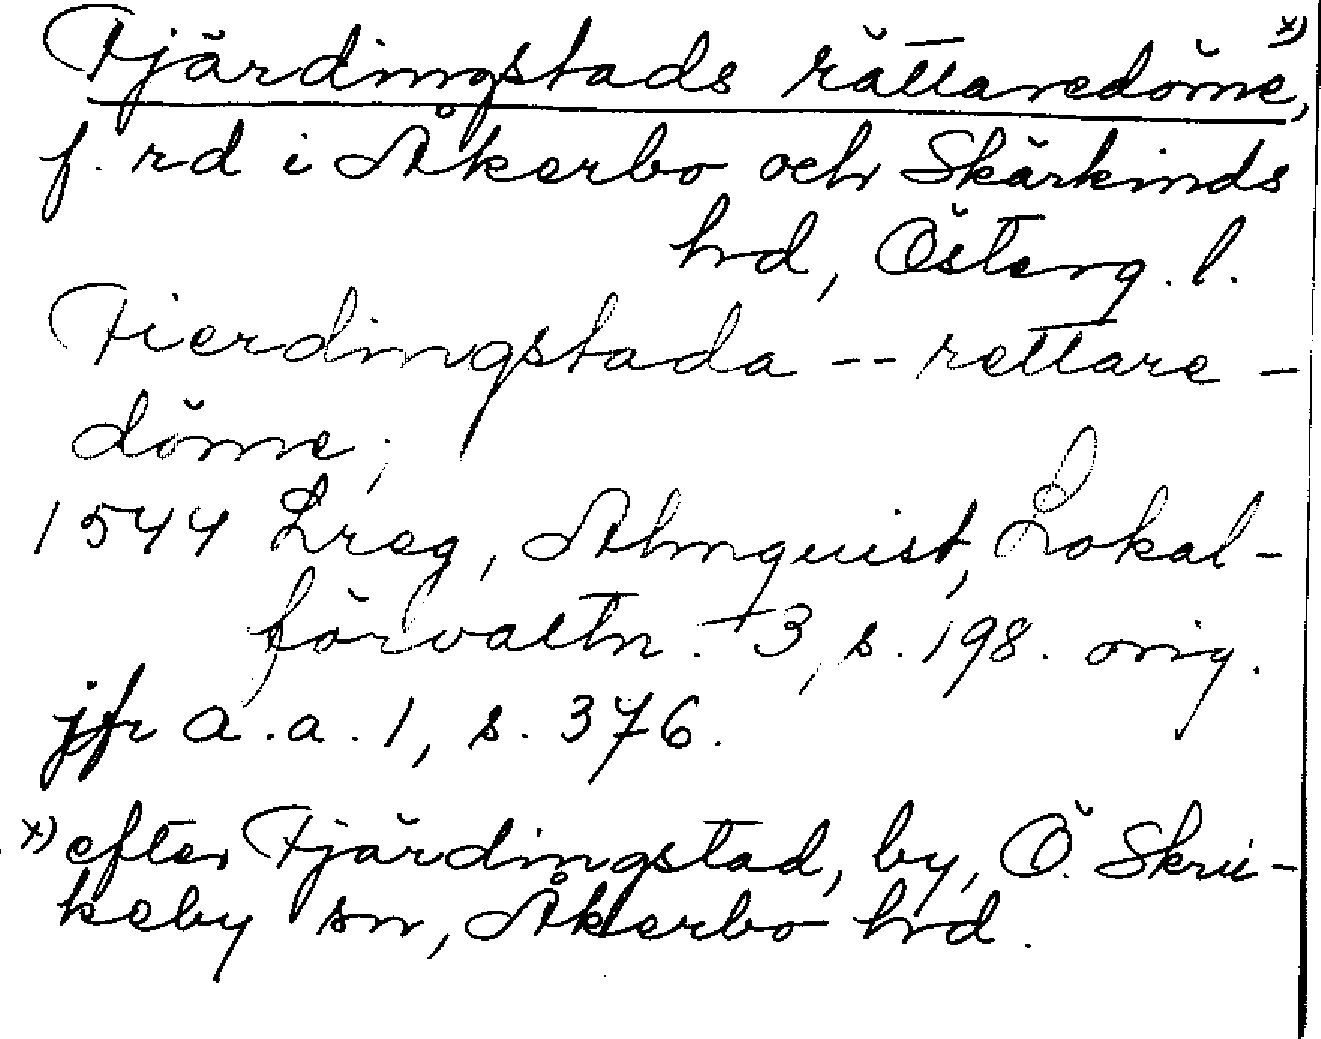 Fjärdingstads rättaredöme, x)
f. rd i Åkerbo och Skärkinds
hrd, Österg. l.
Fierdingstada -- rettare-
döme;
1544 Lreg, Almquist, Lokal-
förvaltn. 3, s. 198. orig.
jfr a.a. 1, s. 376.
x) efter Fjärdingstad, by, Ö. Skru-
keby sn, Åkerbo hrd.